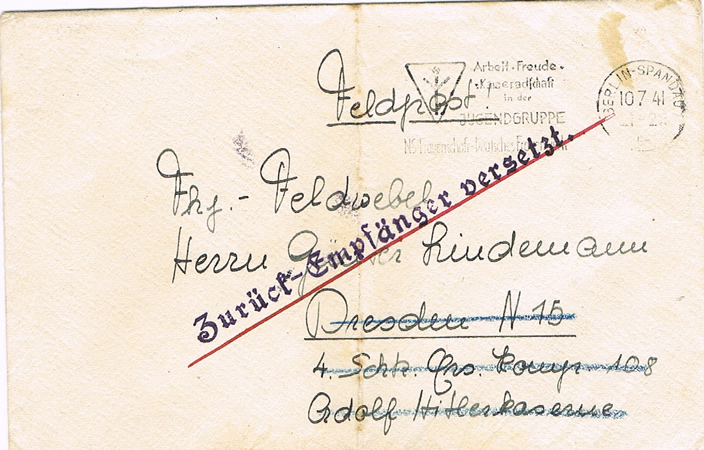 Feldpost!
Arbeit-Freude-
Kameradschaft
in der
JUGENDGRUPPE
BERLIN-SPANDAU
10.7.41
Fhj.- Feldwebel
Herrn Günter Lindemann
Zurück-Empfänger versetzt.
Dresden N 15
4. Schtz. Ers. Komp. 108
Adolf Hitlerkaserne